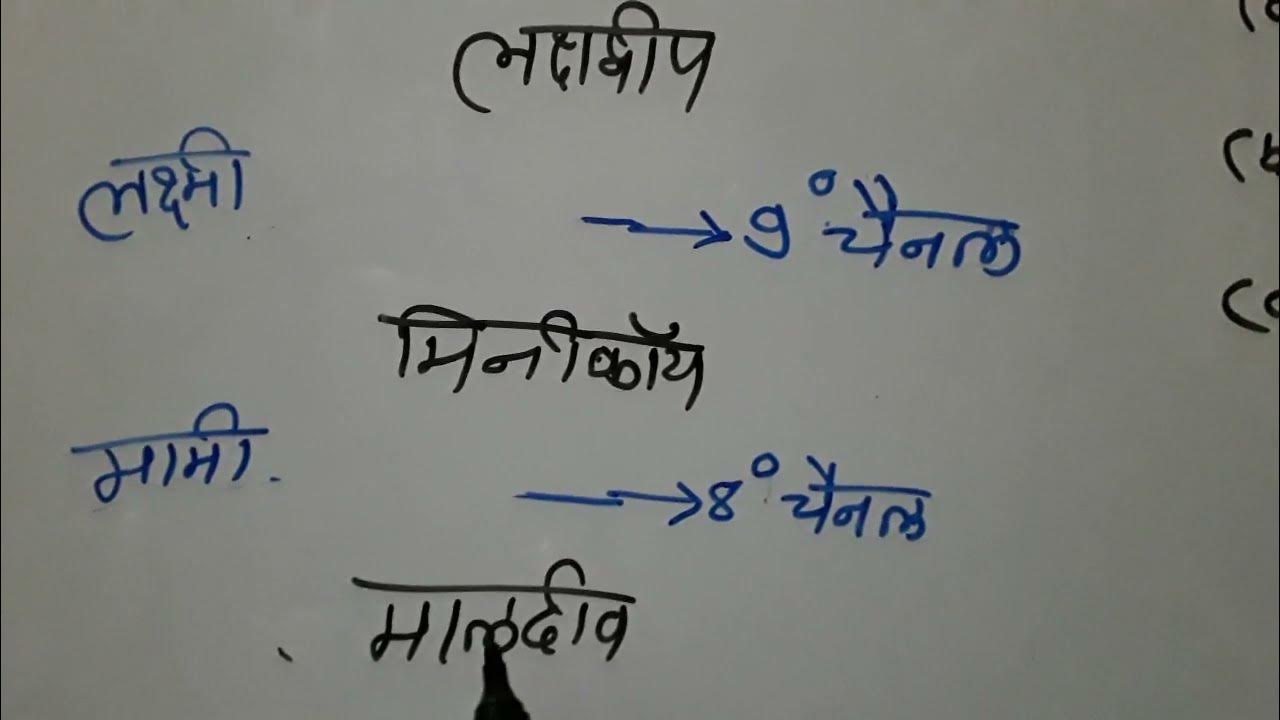 लक्षद्वीप
लक्ष्मी
→ 9° चैनल
मिनीकॉय
मामी.
→ 8° चैनल
मालदीव